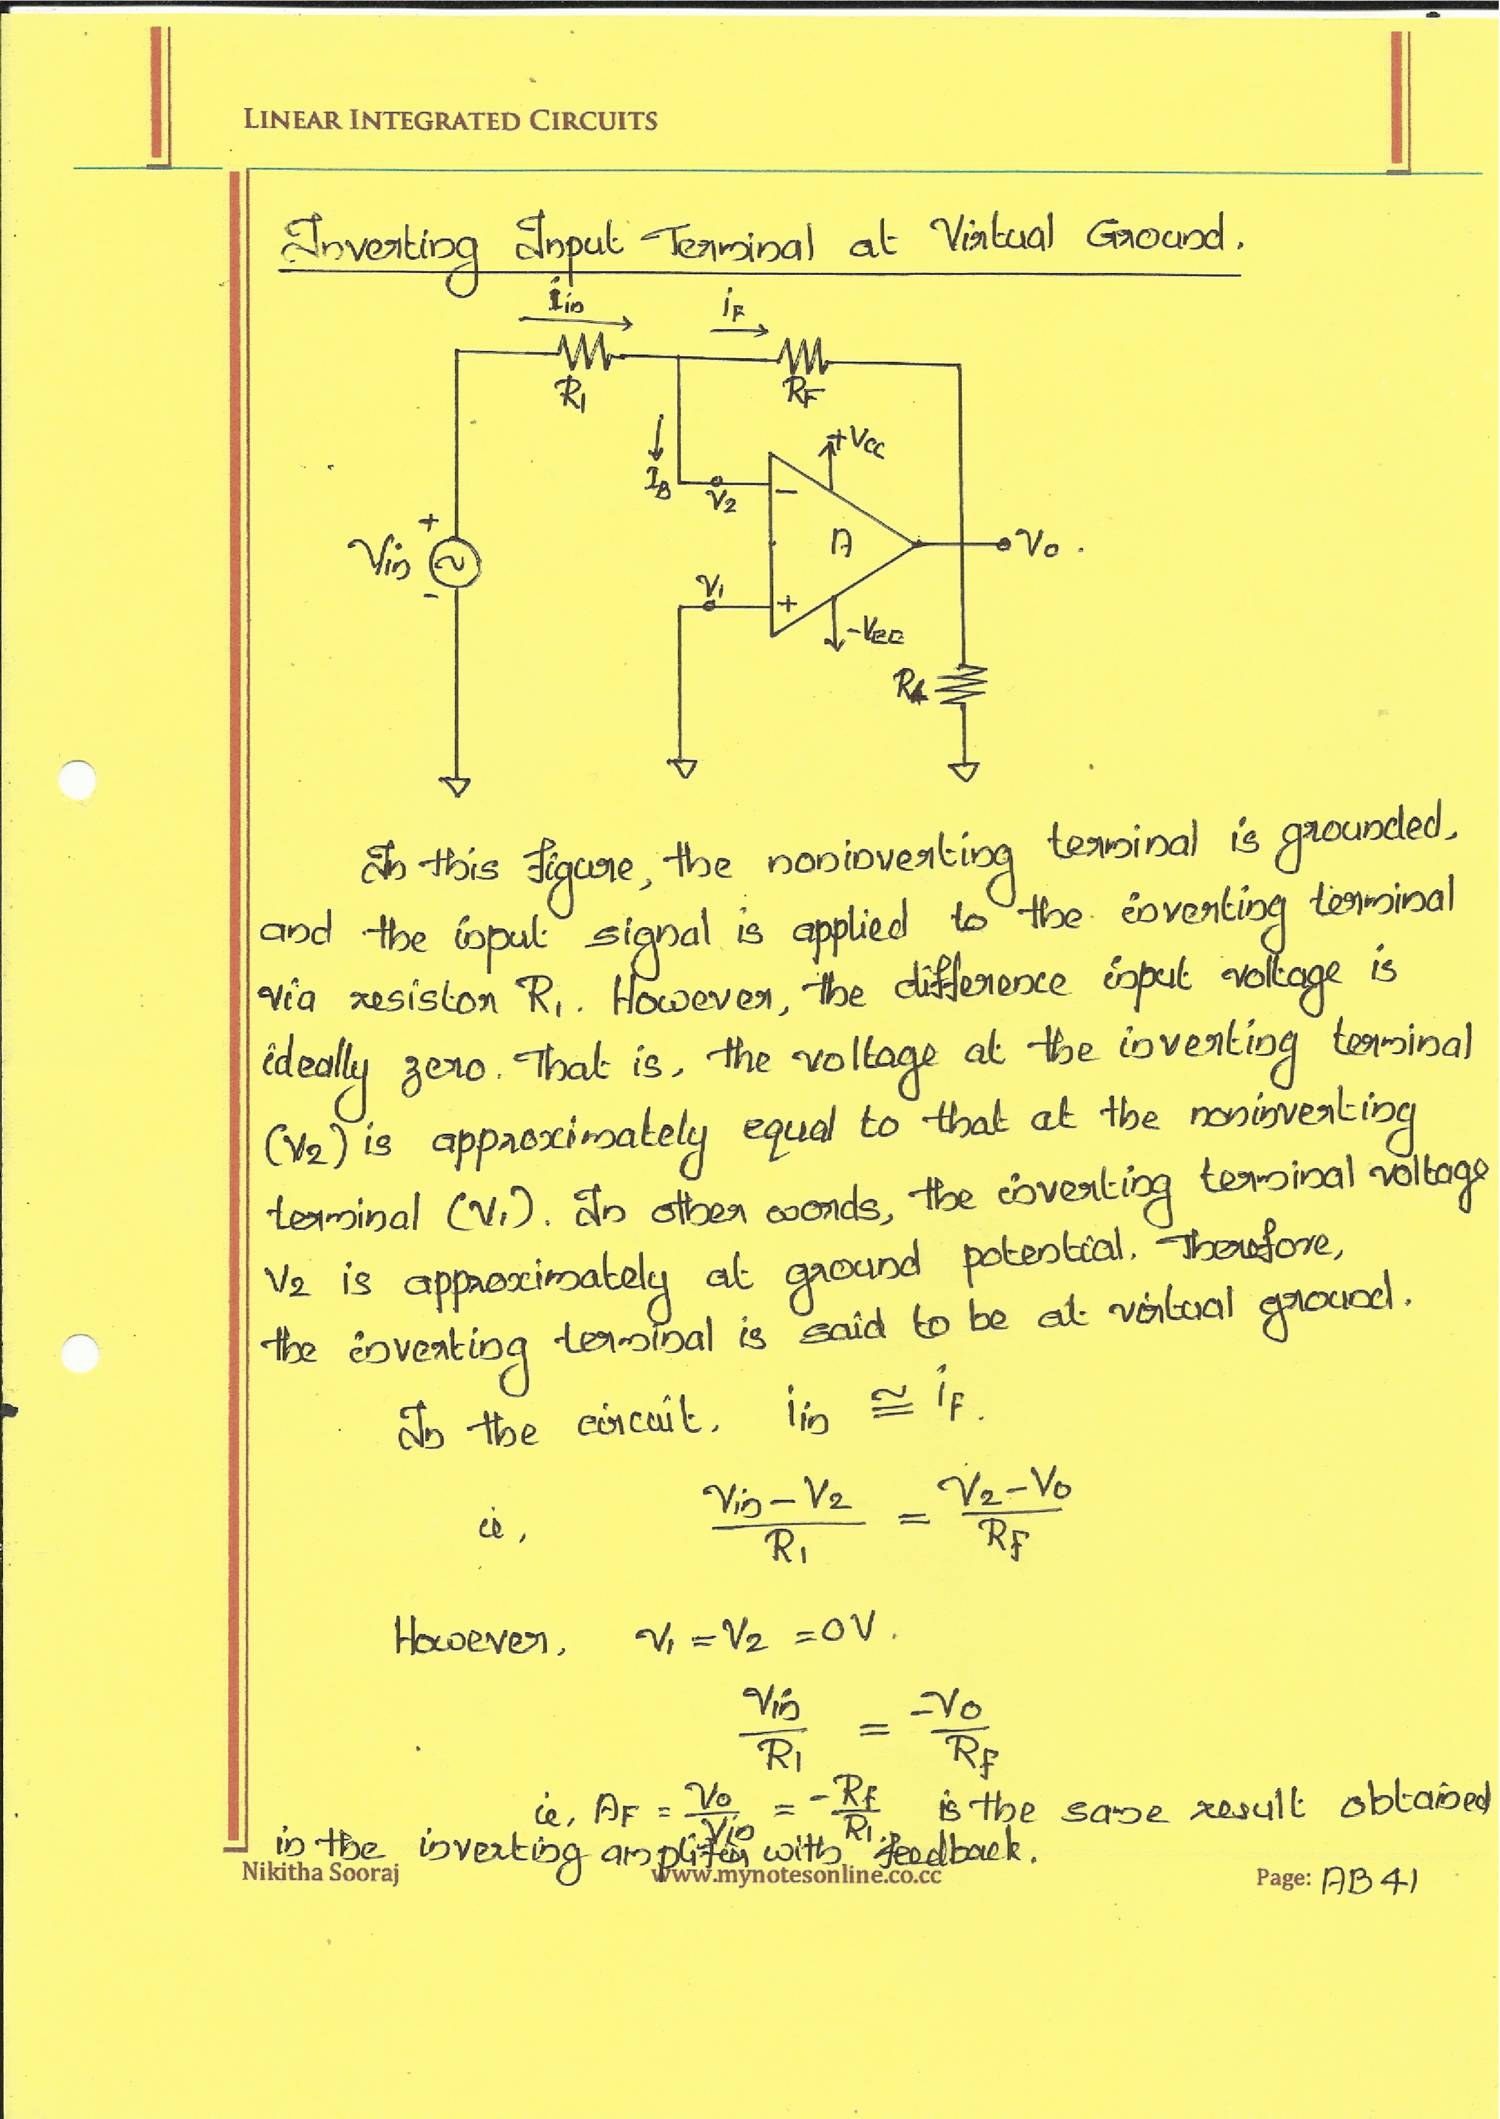 LINEAR INTEGRATED CIRCUITS
Inverting Input Terminal at Virtual Ground.
iin
iF
R1
RF
+VCC
IB
V2
−
A
Vo .
+
Vin
−
V1
+
−VEE
RL
In this figure, the noninverting terminal is grounded,
and the input signal is applied to the inverting terminal
via resistor R1. However, the difference input voltage is
ideally zero. That is, the voltage at the inverting terminal
(V2) is approximately equal to that at the noninverting
terminal (V1). In other words, the inverting terminal voltage
V2 is approximately at ground potential. Therefore,
the inverting terminal is said to be at virtual ground.
In the circuit, iin ≅ iF.
ie, Vin − V2 / R1 = V2 − Vo / RF
However, V1 = V2 = 0V.
Vin / R1 = −Vo / RF
ie, AF = Vo / Vin = −RF / R1 is the same result obtained
in the inverting amplifier with feedback.
Nikitha Sooraj www.mynotesonline.co.cc Page: AB 41